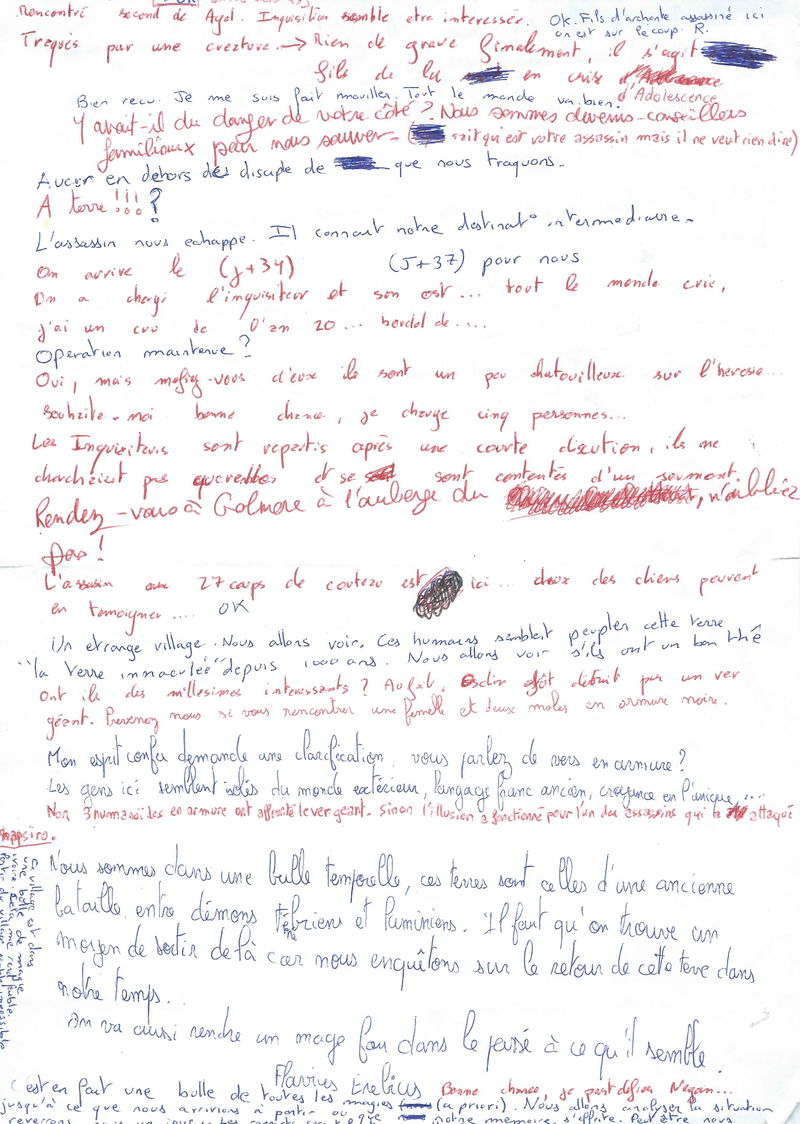 Rencontré second de Agol. Inquisition semble etre interessée. OK. Fils d'archonte assassiné ici
on est sur le coup. R.
Traqués par une creature. → Rien de grave finalement, il s'agit
fils de la en crise
d'Adolescence
Bien recu. Je me suis fait mouiller. Tout le monde va bien.
Y avait-il du danger de votre côté ? Nous sommes devenus conseillers
familiaux pour nous sauver. ( sait qui est votre assassin mais il ne veut rien dire)
Aucun en dehors des disciple de que nous traquons.
A terre !!! ?
L'assassin nous echappe. Il connait notre destinat° intermediaire.
On arrive le (J+34) (J+37) pour nous
On a chargé l'inquisiteur et son ost... tout le monde crie,
j'ai un cru de l'an 20... bordel de....
Operation maintenue ?
Oui, mais mefiez-vous d'eux ils sont un peu chatouilleux sur l'heresie...
Souhaite-moi bonne chance, je charge cinq personnes...
Les Inquisiteurs sont repartis après une courte discution, ils ne
cherchaient pas querelles et se sont contentés d'un serment
Rendez-vous à Golmore à l'auberge du , n'oubliez
pas !
L'assassin aux 27 coups de couteau est ici... deux des chiens peuvent
en temoigner.... OK
Un etrange village. Nous allons voir. Ces humains semblent peupler cette terre
"la terre immaculée" depuis 1000 ans. Nous allons voir s'ils ont un bon thé
Ont ils des millesimes interessants ? détruit par un ver
géant. Prevenez nous si vous rencontrez une femelle et deux males en armure noire.
Mon esprit confu demande une clarification, vous parlez de vers en armure ?
Les gens ici semblent isolés du monde extérieur, langage franc ancien, croyance en l'unique,...
Non 3 humanoïdes en armure ont affronté le ver geant. Sinon l'illusion a fonctionné pour l'un des assassins qui a attaqué
Nous sommes dans une bulle temporelle, ces terres sont celles d'une ancienne
bataille entre démons Ténébriens et Luminiens. Il faut qu'on trouve un
moyen de sortir de là car nous enquêtons sur le retour de cette terre dans
notre temps.
On va aussi rendre un mage fou dans le passé à ce qu'il semble.
Flavius Erebius
Bonne chance, je part defier Negan...
C'est en fait une bulle de toutes les magies (a priori). Nous allons analyser la situation
jusqu'à ce que nous arrivions à partir ou notre memoire s'effrite. Peut être nous